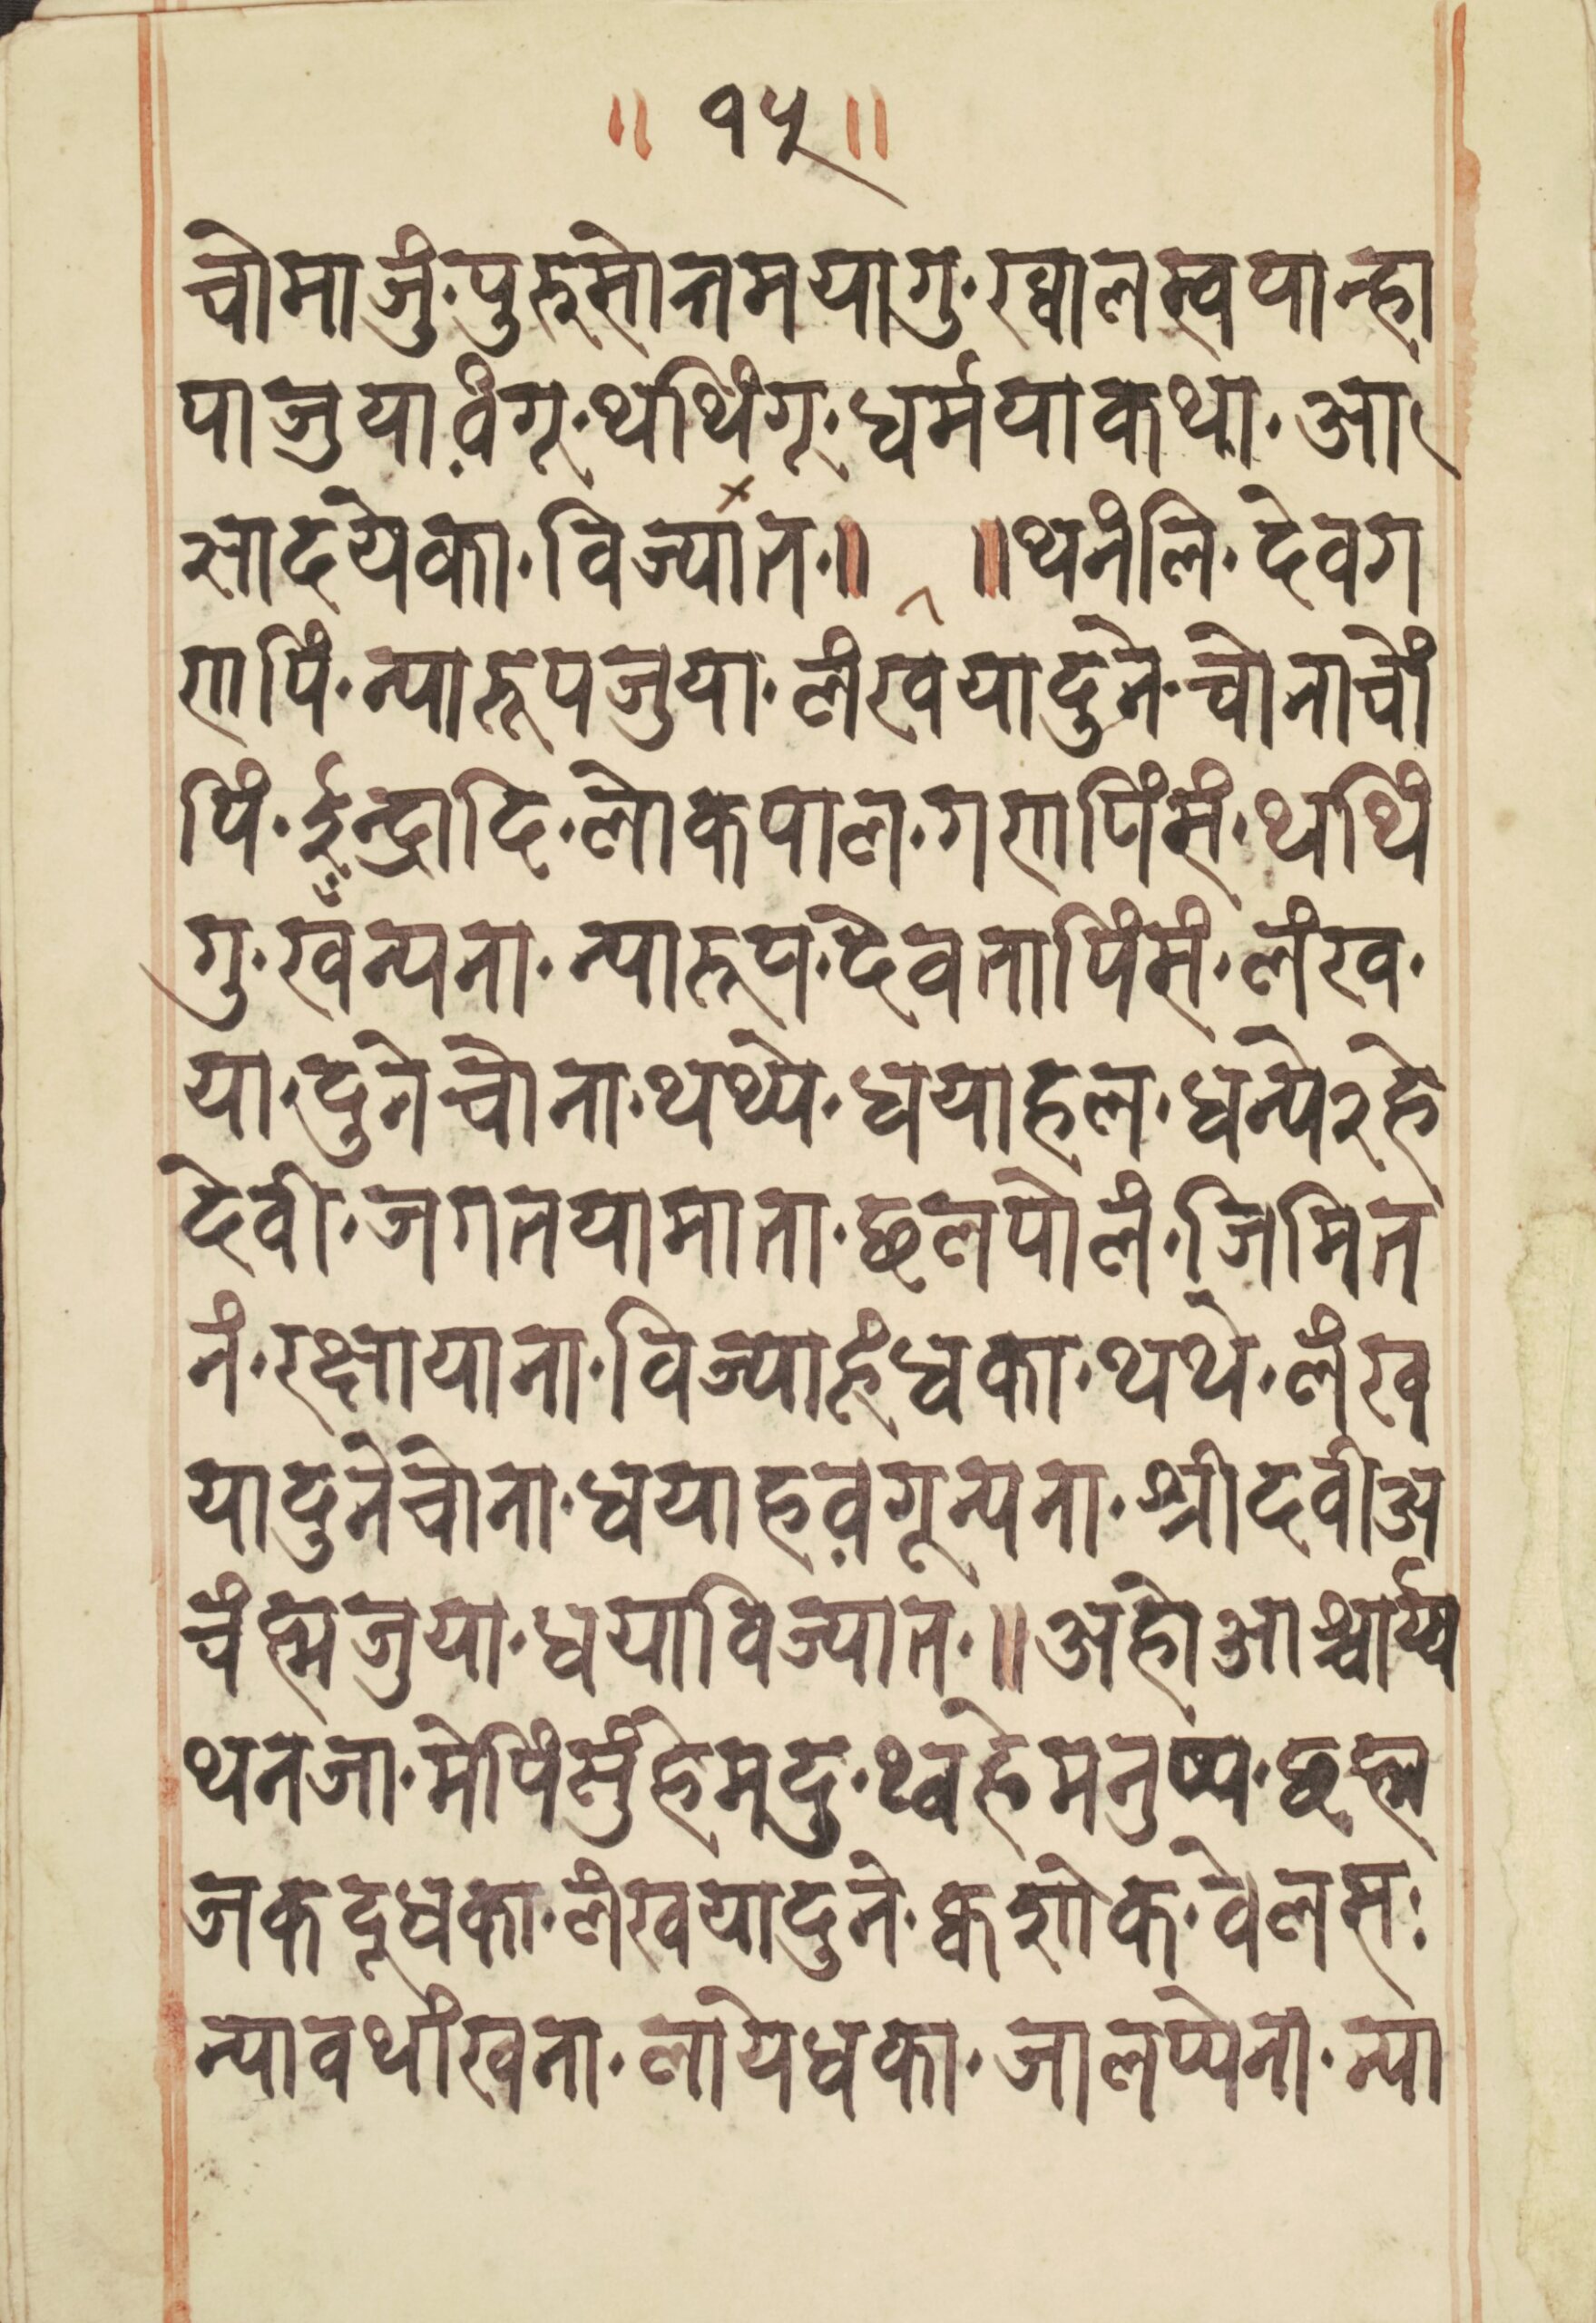 ॥ १५ ॥
चोमाजुं·पुरूसोत्तमयागु·ख्वालस्वपान्हा
पाजुयाव़ंगू·थथिंगू·धर्मयाकथा·आ
सादयेका·विज्यात·॥ ॥थनंलि·देवग
णपिं·न्यारूपजुया·लंखयादुने·चोनाचों
पिं·ईन्द्रादि·लोकपाल·गणपिंसं·थथिं
गु·खँन्यना·न्यारूप·देवतापिंसं·लंख·
या·दुनेचोना·थथ्ये·धयाहल·धन्ये२हे
देवी·जगतयामाता·छलपोलं·जिमित
नं·रक्षायाना·विज्याहुंधका·थथे·लंख
यादुनेचोना·धयाहव़गून्यना·श्रीदवीअ
चंह्मजुया·धयाविज्यात·॥अहोआश्चार्य्य
थनजा·मेपिंसुंहेमदु·थ्वहेमनुष्य·छह्म
जकदूधका·लंखयादुने·क्वशोक·वेलस:
न्यावथींखना·लायेधका·जालप्येना·न्या